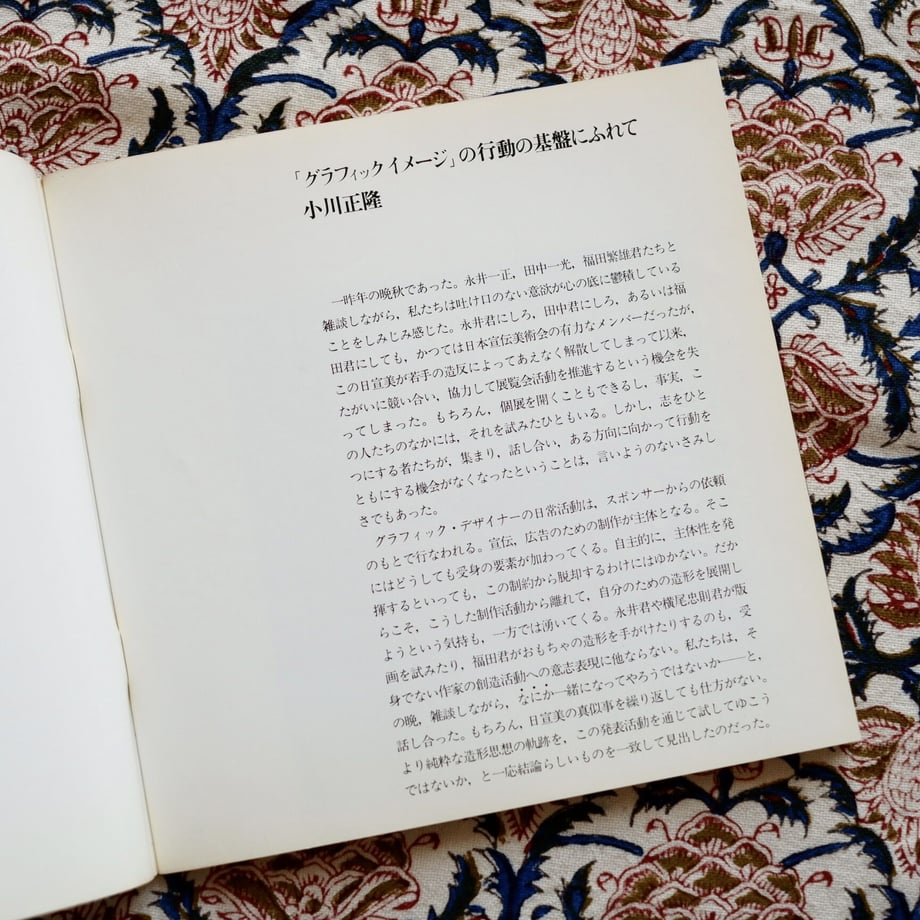 「グラフィックイメージ」の行動の基盤にふれて
小川正隆
一昨年の晩秋であった。永井一正，田中一光，福田繁雄君たちと
雑談しながら，私たちは吐け口のない意欲が心の底に鬱積している
ことをしみじみ感じた。永井君にしろ，田中君にしろ，あるいは福
田君にしても，かつては日本宣伝美術会の有力なメンバーだったが，
この日宣美が若手の造反によってあえなく解散してしまって以来，
たがいに競い合い，協力して展覧会活動を推進するという機会を失
ってしまった。もちろん，個展を開くこともできるし，事実，こ
の人たちのなかには，それを試みたひともいる。しかし，志をひと
つにする者たちが，集まり，話し合い，ある方向に向かって行動を
ともにする機会がなくなったということは，言いようのないさみし
さでもあった。
グラフィック・デザイナーの日常活動は，スポンサーからの依頼
のもとで行なわれる。宣伝，広告のための制作が主体となる。そこ
にはどうしても受身の要素が加わってくる。自主的に，主体性を発
揮するといっても，この制約から脱却するわけにはゆかない。だか
らこそ，こうした制作活動から離れて，自分のための造形を展開し
ようという気持も，一方では湧いてくる。永井君や横尾忠則君が版
画を試みたり，福田君がおもちゃの造形を手がけたりするのも，受
身でない作家の創造活動への意志表現に他ならない。私たちは，そ
の晩，雑談しながら，なにか一緒になってやろうではないか――と，
話し合った。もちろん，日宣美の真似事を繰り返しても仕方がない。
より純粋な造形思想の軌跡を，この発表活動を通じて試してゆこう
ではないか，と一応結論らしいものを一致して見出したのだった。